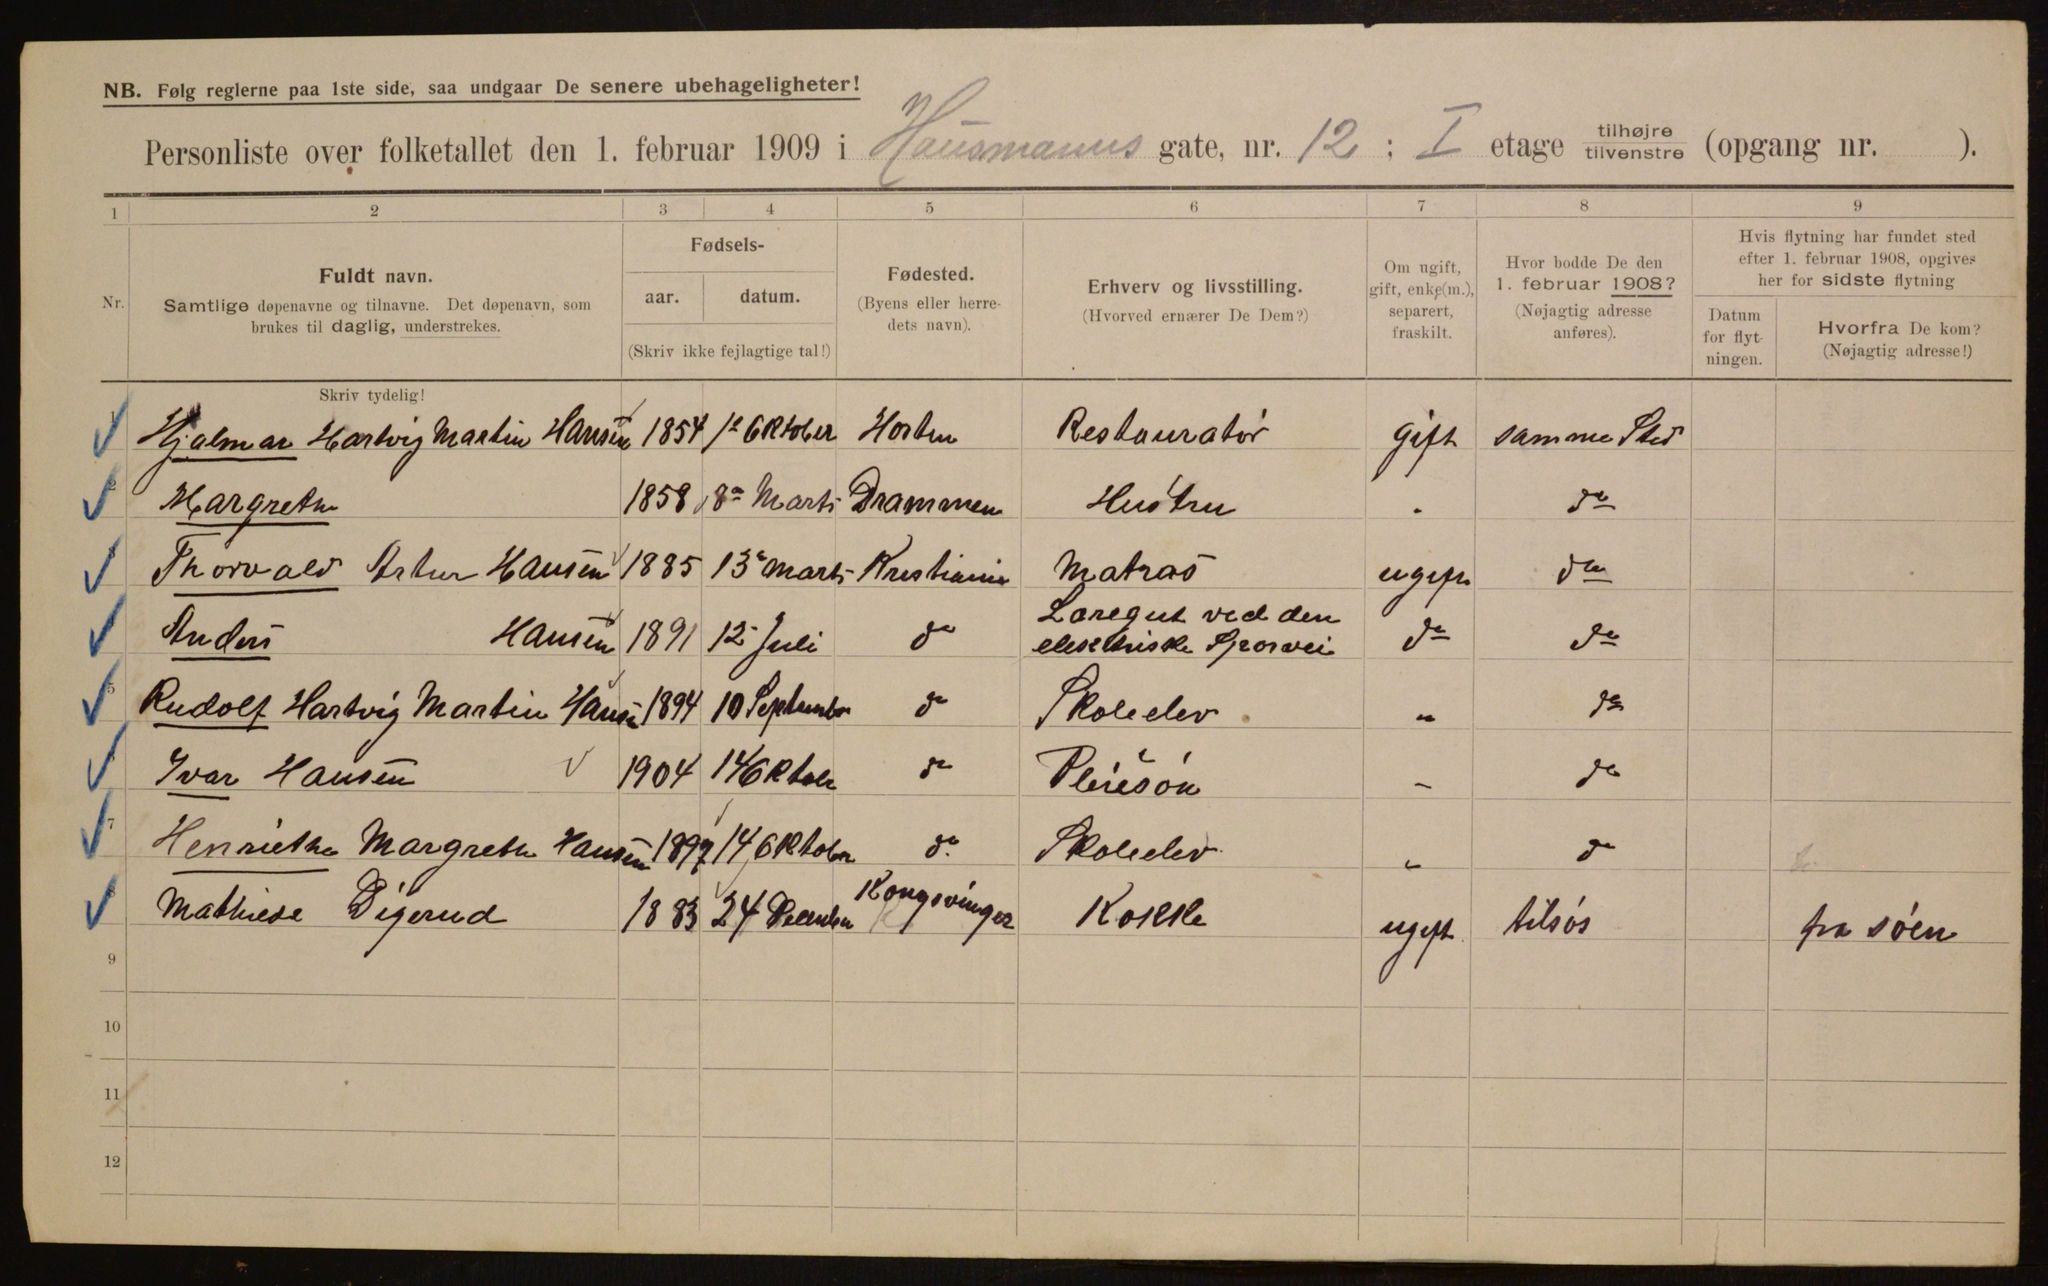 NB. Følg reglerne paa 1ste side, saa undgaar De senere ubehageligheter!
Personliste over folketallet den 1. februar 1909 i Hausmanns gate, nr. 12 ; I etage tilhøjre tilvenstre (opgang nr. ).
1 2 3 4 5 6 7 8 9
Nr.
Fuldt navn.
Samtlige døpenavne og tilnavne. Det døpenavn, som
brukes til daglig, understrekes.
Fødsels-
aar. datum.
(Skriv ikke fejlagtige tal!)
Fødested.
(Byens eller herre-
dets navn).
Erhverv og livsstilling.
(Hvorved ernærer De Dem?)
Om ugift,
gift, enke(m.),
separert,
fraskilt.
Hvor bodde De den
1. februar 1908?
(Nøjagtig adresse
anføres).
Hvis flytning har fundet sted
efter 1. februar 1908, opgives
her for sidste flytning
Datum
for flyt-
ningen.
Hvorfra De kom?
(Nøjagtig adresse!)
Skriv tydelig!
1 Hjalmar Hartvig Martin Hansen 1854 1ª Oktober Horten Restauratør gift samme Sted
2 Margrethe 1858 8ª Marts Drammen Hustru " dº
3 Thorvald Artur Hansen 1885 13ª Marts Kristiania Matros ugift dº
Anders Hansen 1891 12 Juli dº Læregut ved den
elektriske Sporvei dº dº
5 Rudolf Hartvig Martin Hansen 1894 10 September dº Skoleelev " dº
Ivar Hansen 1904 14 Oktober dº Pleiesøn - dº
7 Henriethe Margrethe Hansen 1897 14 Oktober dº Skoleelev " dº
8 Mathilde Digerud 1883 24 December Kongsvinger Kokke ugift tilsøs fra søen
9
10
11
12